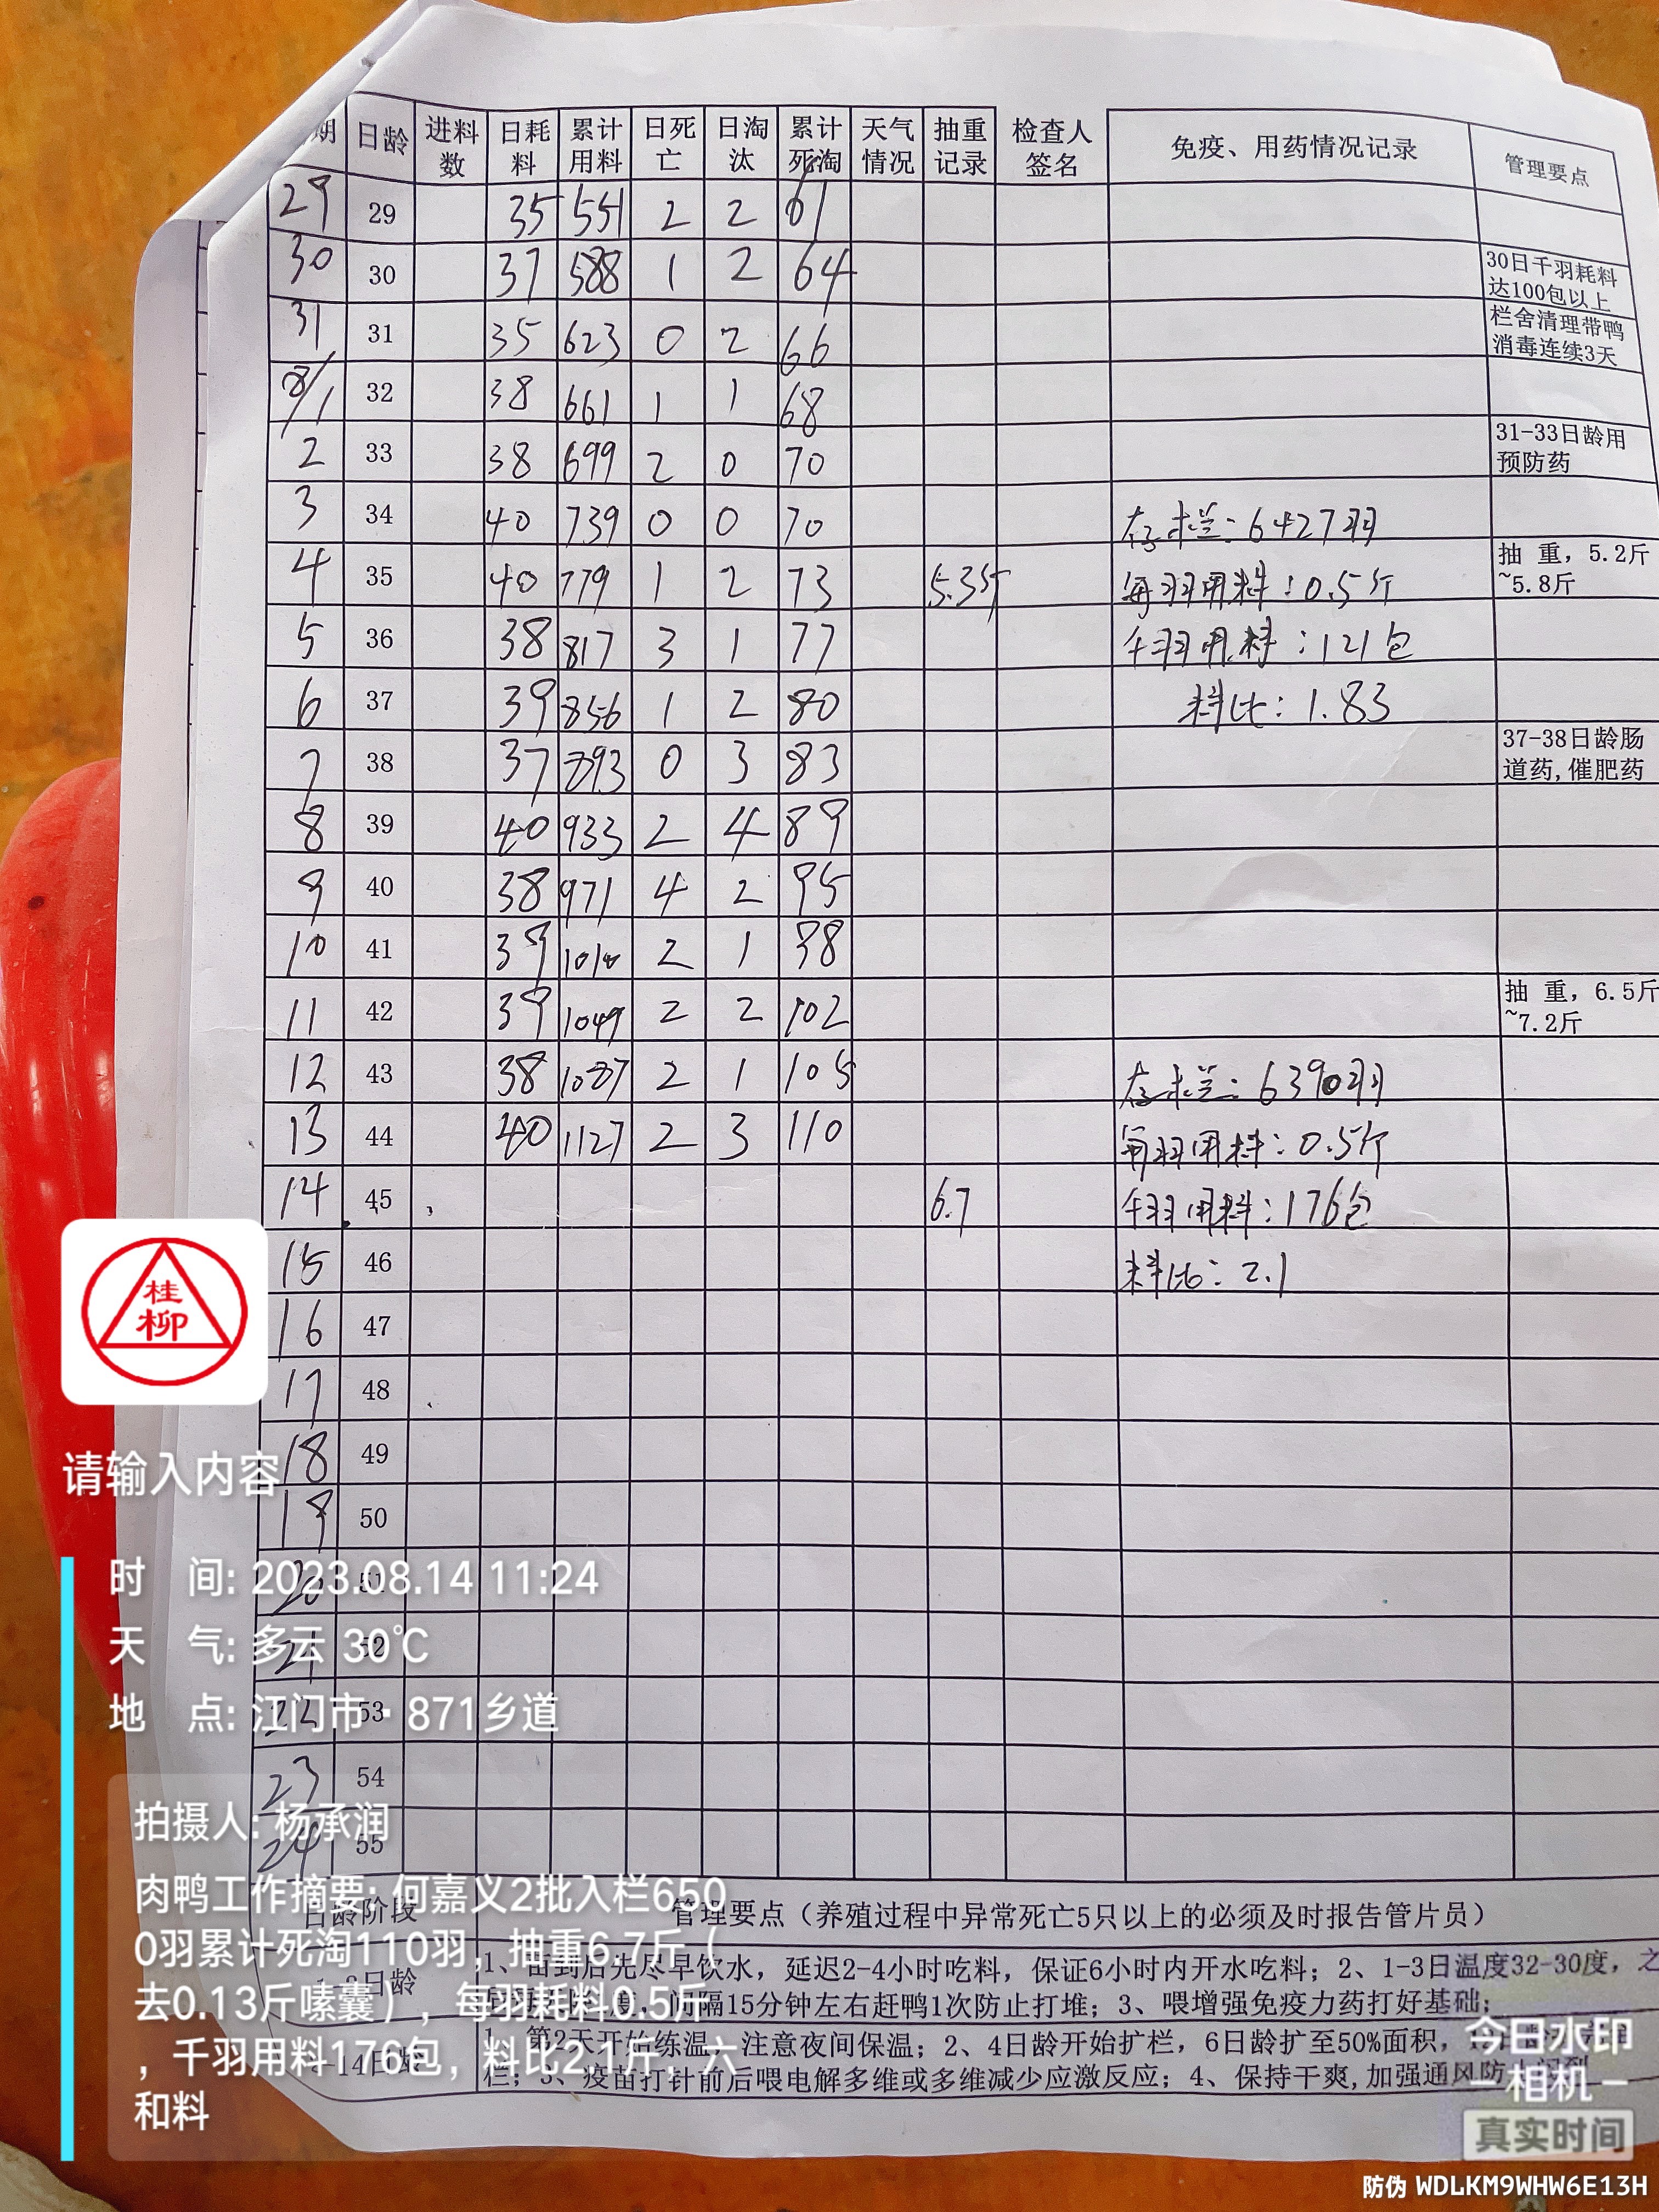 期 日龄 进料数 日耗料 累计用料 日死亡 日淘汰 累计死淘 天气情况 抽重记录 检查人签名 免疫、用药情况记录 管理要点
29 29 35 551 2 2 61
30 30 37 588 1 2 64 30日千羽耗料达100包以上
31 31 35 623 0 2 66 栏舍清理带鸭消毒连续3天
8/1 32 38 661 1 1 68
2 33 38 699 2 0 70 31-33日龄用预防药
3 34 40 739 0 0 70 存栏:6427羽
4 35 40 779 1 2 73 5.3斤 每羽用料:0.5斤 抽 重，5.2斤~5.8斤
5 36 38 817 3 1 77 千羽用料:121包
6 37 39 856 1 2 80 料比:1.83
7 38 37 893 0 3 83 37-38日龄肠道药,催肥药
8 39 40 933 2 4 89
9 40 38 971 4 2 95
10 41 39 1010 2 1 98
11 42 39 1049 2 2 102 抽 重，6.5斤~7.2斤
12 43 38 1087 2 1 105 存栏:6390羽
13 44 40 1127 2 3 110 每羽用料:0.5斤
14 45 6.7 千羽用料:176包
15 46 料比:2.1
16 47
17 48
18 49
19 50
20 51
21 52
22 53
23 54
24 55
日龄阶段 管理要点（养殖过程中异常死亡5只以上的必须及时报告管片员）
日龄 1、苗到后先尽早饮水，延迟2-4小时吃料，保证6小时内开水吃料；2、1-3日温度32-30度，之
度，间隔15分钟左右赶鸭1次防止打堆；3、喂增强免疫力药打好基础；
-14日龄 1、第2天开始练温，注意夜间保温；2、4日龄开始扩栏，6日龄扩至50%面积，
栏；3、疫苗打针前后喂电解多维或多维减少应激反应；4、保持干爽,加强通风防
桂
柳
请输入内容
时 间: 2023.08.14 11:24
天 气: 多云 30℃
地 点: 江门市·871乡道
拍摄人: 杨承润
肉鸭工作摘要: 何嘉义2批入栏650
0羽累计死淘110羽，抽重6.7斤（
去0.13斤嗉囊），每羽耗料0.5斤
，千羽用料176包，料比2.1斤，六
和料
今日水印
相机
真实时间
防伪 WDLKM9WHW6E13H